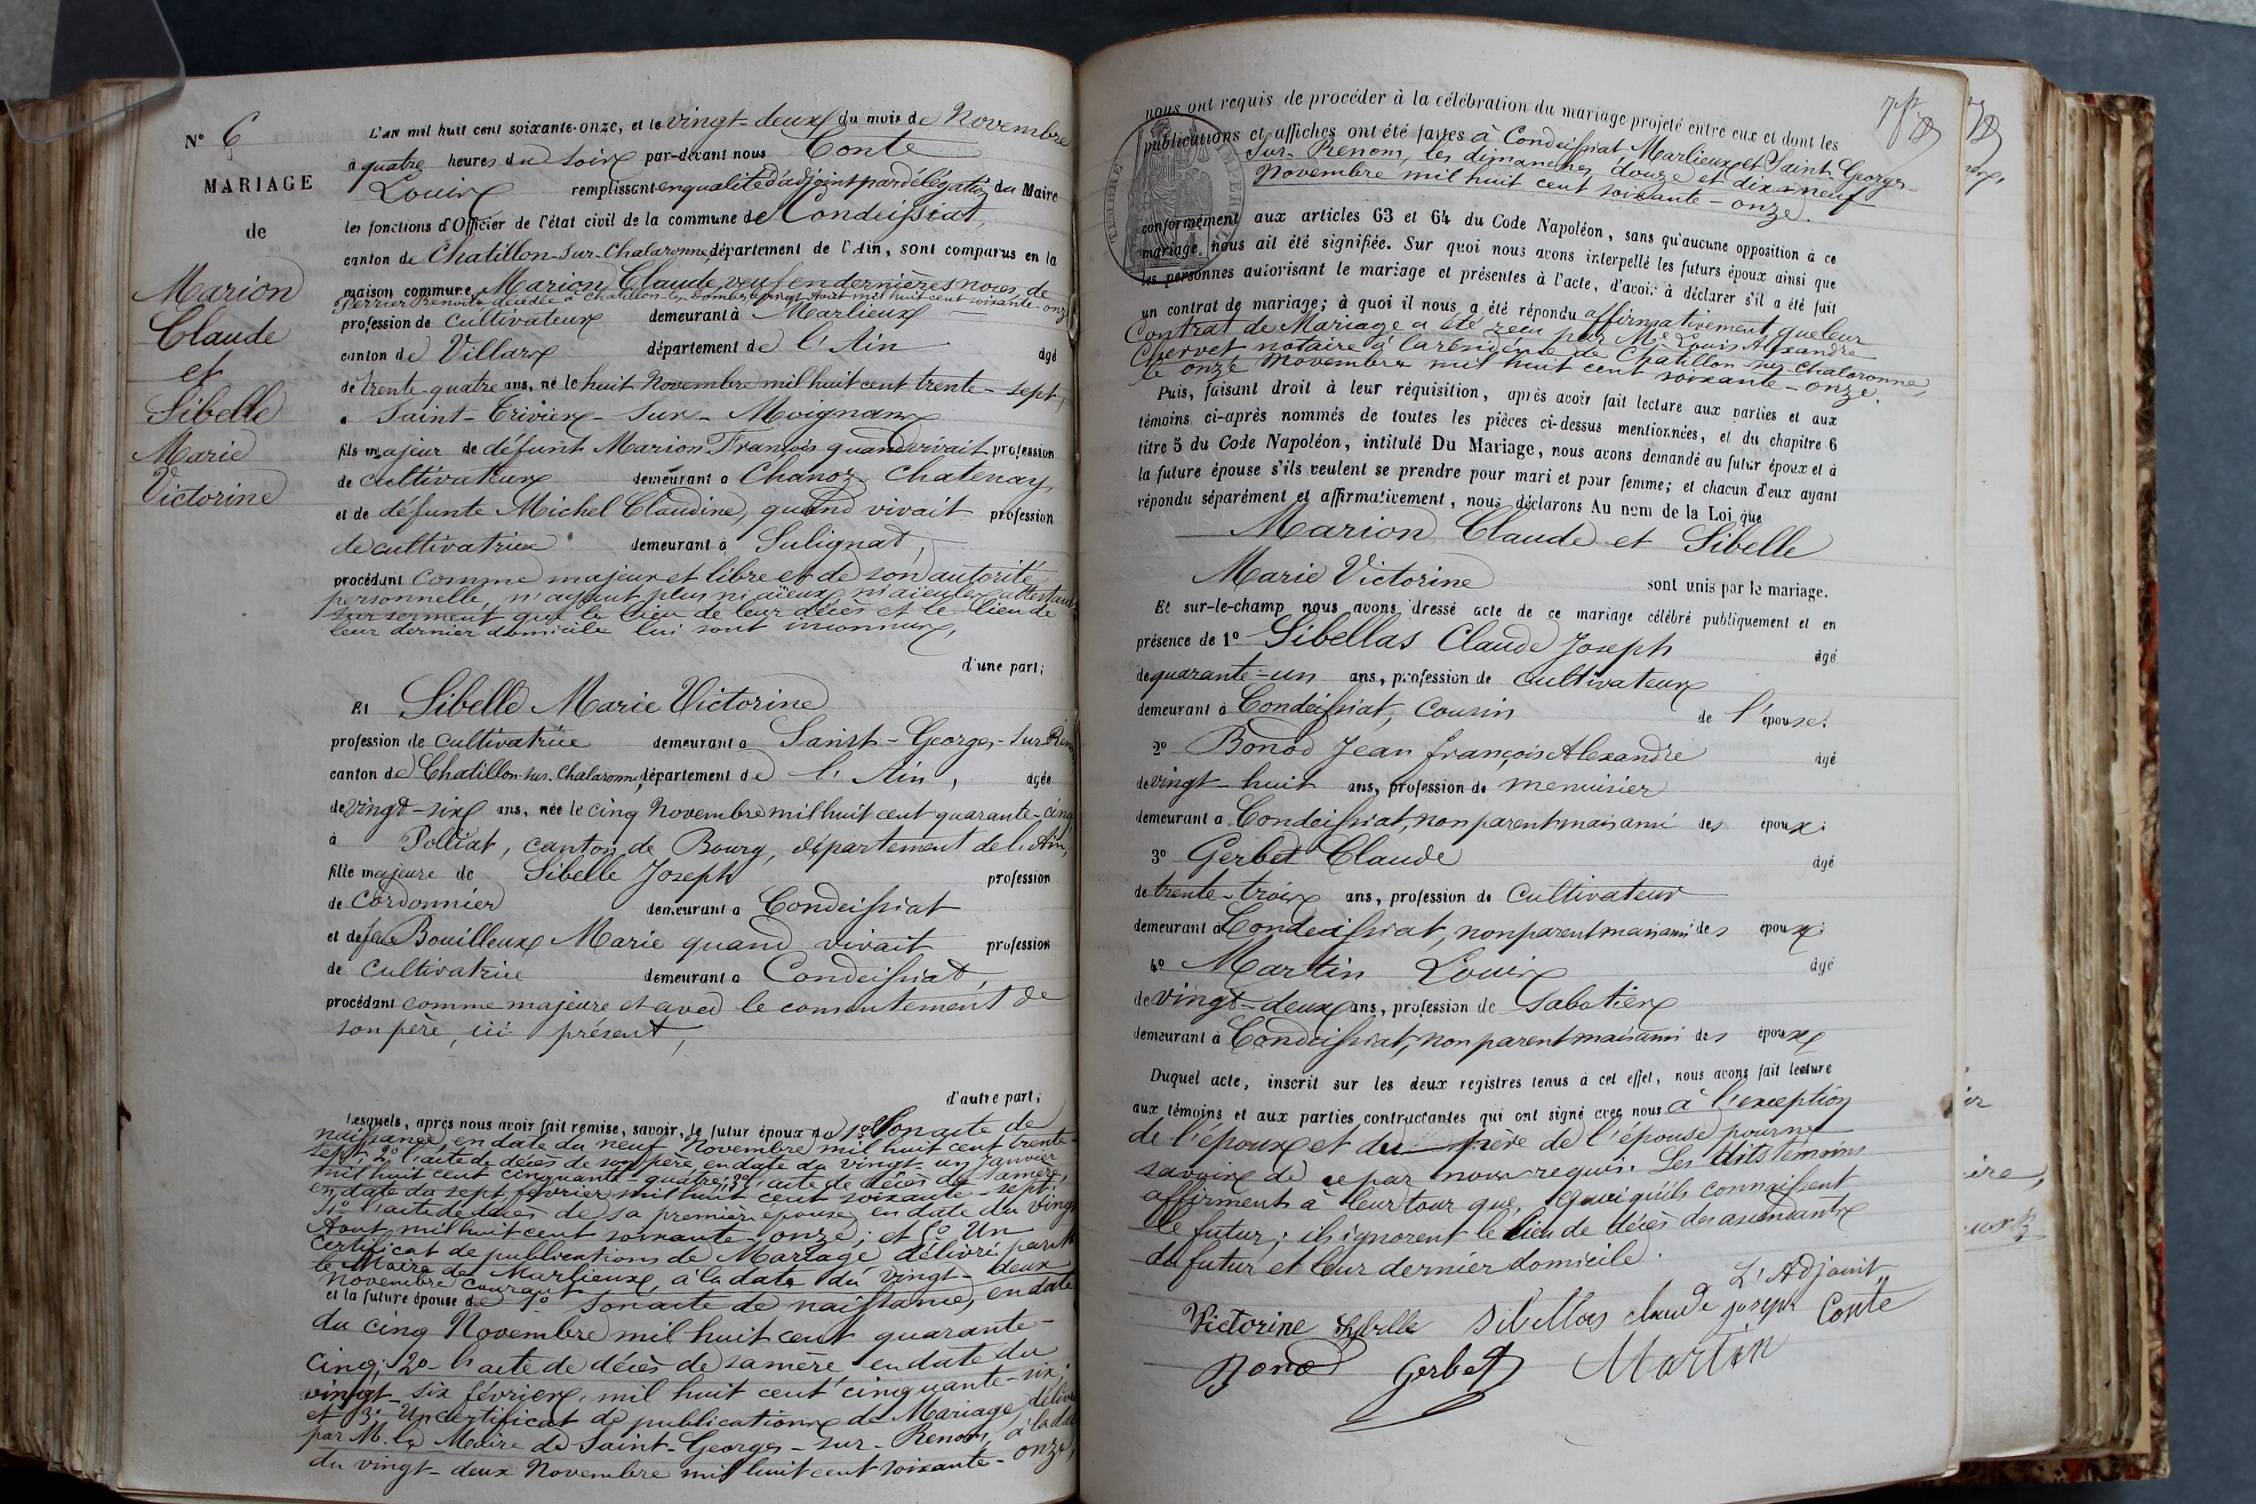 N° 6
MARIAGE
de
Marion
Claude
et
Sibelle
Marie
Victorine
L'AN mil huit cent soixante-onze, et le vingt-deux du mois de Novembre
à quatre heures du soir par-devant nous Conte
Louis remplissant en qualité d'adjoint par délégation du Maire
les fonctions d'Officier de l'état civil de la commune de Condeissiat,
canton de Chatillon-sur-Chalaronne département de l'Ain, sont comparus en la
maison commune Marion Claude, veuf en dernières noces de
Perrier Benoite décédée à Chatillon-les-Dombes le vingt Août mil huit cent soixante-onze
profession de cultivateur demeurant à Marlieux
canton de Villars département de l'Ain âgé
de trente-quatre ans, né le huit Novembre mil huit cent trente-sept,
à Saint-Trivier-sur-Moignans
fils majeur de défunt Marion François quand vivait profession
de cultivateur demeurant à Chanoz-Chatenay,
et de défunte Michel Claudine, quand vivait profession
de cultivatrice demeurant à Sulignat,
procédant comme majeur et libre et de son autorité
personnelle, n'ayant plus ni aïeux, ni aïeules, attestant
sur serment que le lieu de leur décès et le lieu de
leur dernier domicile lui sont inconnus,
d'une part;
Et Sibelle Marie Victorine
profession de cultivatrice demeurant à Saint-Georges-sur-Renom
canton de Chatillon-sur-Chalaronne, département de l'Ain, âgée
de vingt-six ans, née le cinq Novembre mil huit cent quarante-cinq
à Polliat, canton de Bourg, département de l'Ain,
fille majeure de Sibelle Joseph profession
de cordonnier demeurant à Condeissiat
et de feue Bouilleux Marie quand vivait profession
de cultivatrice demeurant à Condeissiat,
procédant comme majeure et avec le consentement de
son père, ici présent,
d'autre part;
Lesquels, après nous avoir fait remise, savoir, le futur époux de 1° Son acte de
naissance, en date du neuf Novembre mil huit cent trente-
sept; 2° l'acte de décès de son père, en date du vingt-un Janvier
mil huit cent cinquante-quatre; 3° l'acte de décès de sa mère,
en date du sept février mil huit cent soixante-sept;
4° l'acte de décès de sa première épouse, en date du vingt
Août mil huit cent soixante-onze; et 5° Un
certificat de publications de Mariage délivré par M
le Maire de Marlieux, à la date du vingt-deux
Novembre courant
et la future épouse de 1° son acte de naissance, en date
du cinq Novembre mil huit cent quarante-
cinq; 2° l'acte de décès de sa mère en date du
vingt-six février, mil huit cent cinquante-six;
et 3° Un certificat de publications de Mariage, délivré
par M. le Maire de Saint-Georges-sur-Renom, à la date
du vingt-deux Novembre mil huit cent soixante-onze,
nous ont requis de procéder à la célébration du mariage projeté entre eux et dont les
publications et affiches ont été faites à Condeissiat Marlieux et Saint-Georges-
sur-Renom, les dimanches douze et dix-neuf
Novembre mil huit cent soixante-onze.
conformément aux articles 63 et 64 du Code Napoléon, sans qu'aucune opposition à ce
mariage nous ait été signifiée. Sur quoi nous avons interpellé les futurs époux ainsi que
les personnes autorisant le mariage et présentes à l'acte, d'avoir à déclarer s'il a été fait
un contrat de mariage; à quoi il nous a été répondu affirmativement que leur
Contrat de Mariage a été reçu par Me Louis Alexandre
Chervet notaire à la résidence de Chatillon-sur-Chalaronne,
le onze Novembre mil huit cent soixante-onze.
Puis, faisant droit à leur réquisition, après avoir fait lecture aux parties et aux
témoins ci-après nommés de toutes les pièces ci-dessus mentionnées, et du chapitre 6
titre 5 du Code Napoléon, intitulé Du Mariage, nous avons demandé au futur époux et à
la future épouse s'ils veulent se prendre pour mari et pour femme; et chacun d'eux ayant
répondu séparément et affirmativement, nous déclarons Au nom de la Loi que
Marion Claude et Sibelle
Marie Victorine sont unis par le mariage.
Et sur-le-champ nous avons dressé acte de ce mariage célébré publiquement et en
présence de 1° Sibellas Claude Joseph âgé
de quarante-un ans, profession de cultivateur
demeurant à Condeissiat, cousin de l'épouse.
2° Bonod Jean françois Alexandre âgé
de vingt-huit ans, profession de menuisier
demeurant à Condeissiat, non parent mais ami des époux.
3° Gerbet Claude âgé
de trente-trois ans, profession de cultivateur
demeurant à Condeissiat, non parent mais ami des époux.
4° Martin Louis âgé
de vingt-deux ans, profession de Sabotier
demeurant à Condeissiat, non parent mais ami des époux
Duquel acte, inscrit sur les deux registres tenus à cet effet, nous avons fait lecture
aux témoins et aux parties contractantes qui ont signé avec nous à l'exception
de l'époux et du père de l'épouse pour ne
savoir de ce par nous requis. Les dits témoins
affirment à leur tour que, quoiqu'ils connaissent
le futur; ils ignorent le lieu de décès des ascendants
du futur et leur dernier domicile.
L'Adjoint
Victorine Sybelle Sibellas claude joseph Conte
Bonod Gerbet Martin